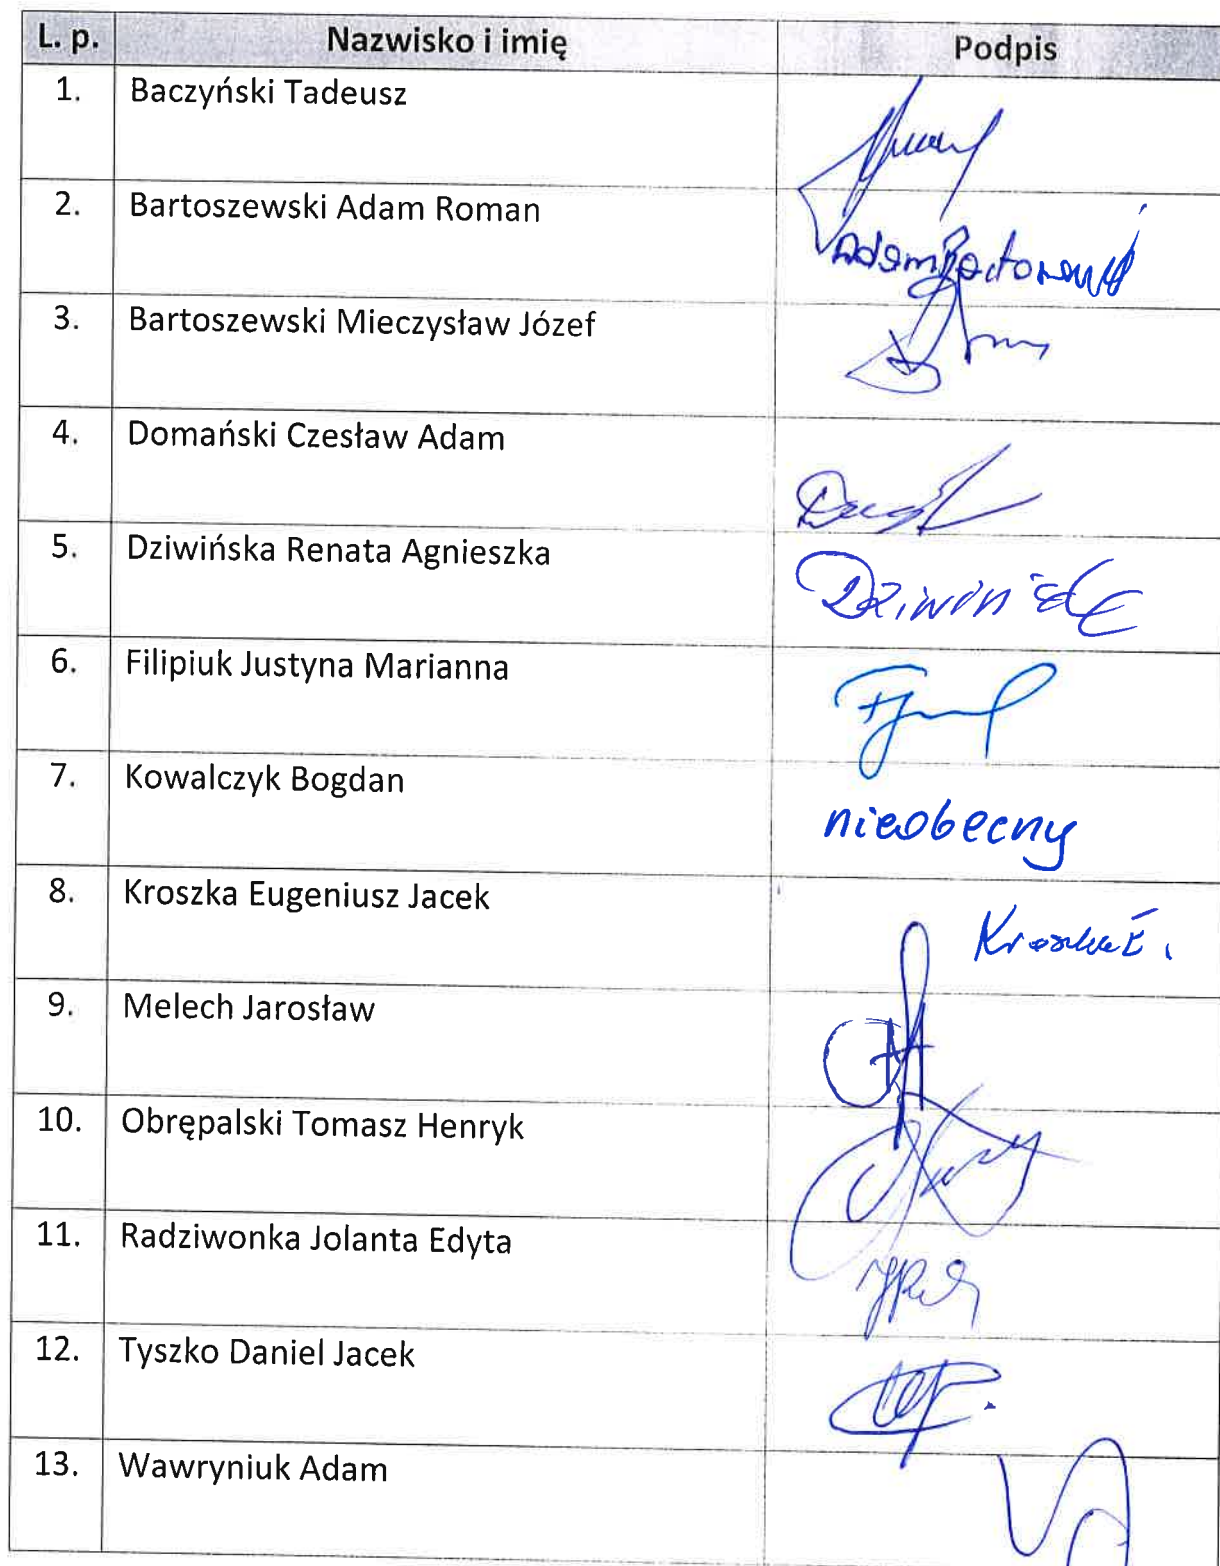 L. p. Nazwisko i imię Podpis
1. Baczyński Tadeusz
2. Bartoszewski Adam Roman Adam
3. Bartoszewski Mieczysław Józef
4. Domański Czesław Adam
5. Dziwińska Renata Agnieszka
6. Filipiuk Justyna Marianna
7. Kowalczyk Bogdan nieobecny
8. Kroszka Eugeniusz Jacek Kroszka E.
9. Melech Jarosław
10. Obrępalski Tomasz Henryk
11. Radziwonka Jolanta Edyta
12. Tyszko Daniel Jacek
13. Wawryniuk Adam